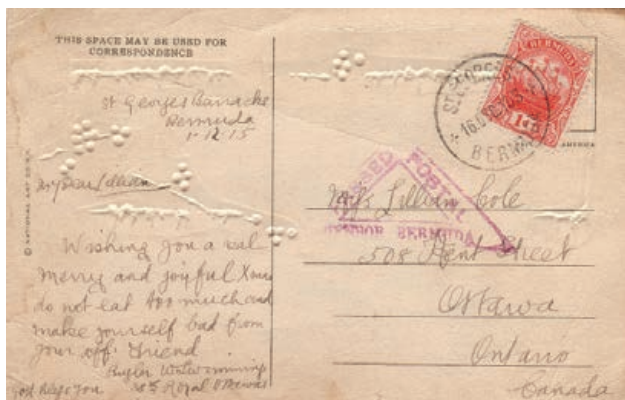 THIS SPACE MAY BE USED FOR
CORRESPONDENCE
St Georges Barracks
Bermuda
1-12-15
My Dear Lillian
Wishing you a real
merry and joyful Xmas
do not eat too much and
make yourself bad from
your off. friend
Bugler
38th Royal Ottawas
God Bless You
BERMUDA
1d
ST. GEORGES
BERMUDA
PASSED
POSTAL
CENSOR BERMUDA
Miss Lillian Cole
508 Kent Street
Ottawa
Ontario
Canada
AMERICA